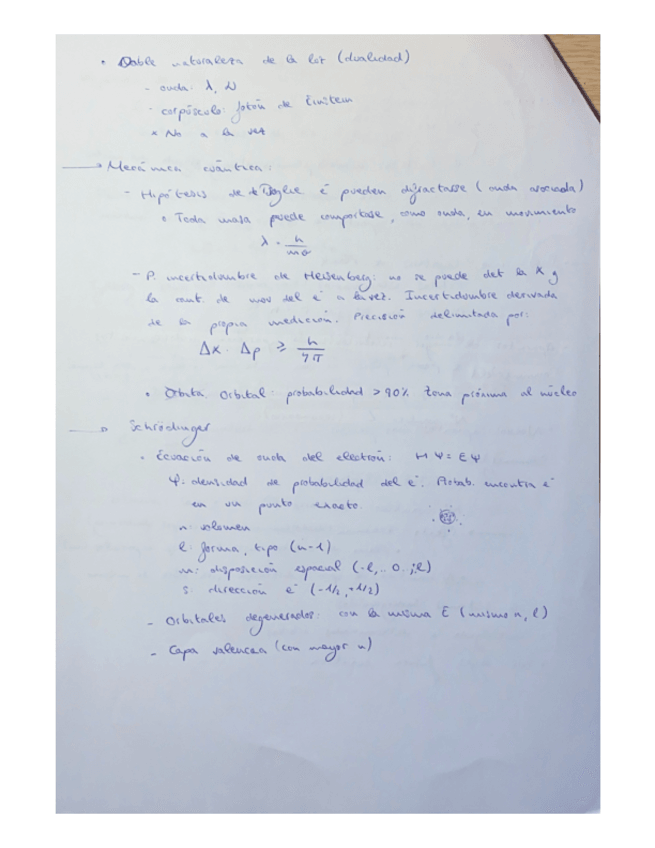 • Doble naturaleza de la luz (dualidad)
- onda: λ, ν
- corpúsculo: fotón de Einstein
* No a la vez
→ Mecánica cuántica:
- Hipótesis de Broglie e⁻ pueden difractarse (onda asociada)
• Toda masa puede comportarse, como onda, en movimiento
λ = h / mv
- P. incertidumbre de Heisenberg: no se puede det la x y
la cant. de mov del e⁻ a la vez. Incertidumbre derivada
de la propia medición. Precisión delimitada por:
Δx · Δp ≥ h / 4π
• Órbita. Orbital: probabilidad > 90% zona próxima al núcleo
→ Schrödinger
• Ecuación de onda del electrón: H Ψ = E Ψ
Ψ: densidad de probabilidad del e⁻. Probab. encontrar e⁻
en un punto exacto.
n: volumen
l: forma, tipo (n-1)
m: disposición espacial (-l, .. 0 .; l)
s: dirección e⁻ (-1/2, +1/2)
- Orbitales degenerados: con la misma E (mismo n, l)
- Capa valencia (con mayor n)